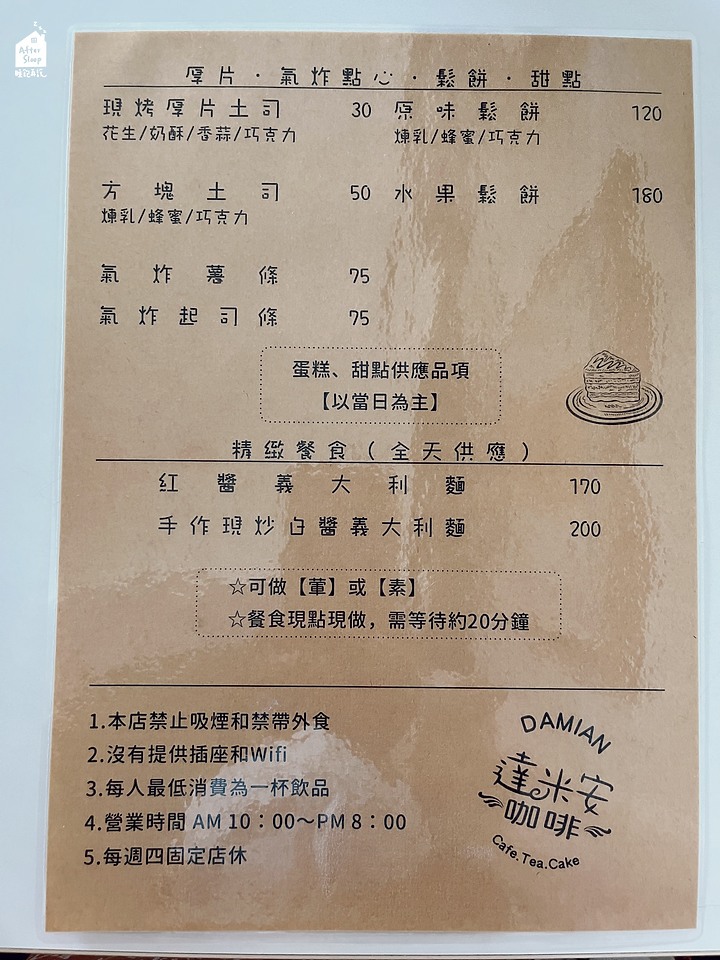 After
Sleep
睡飽再玩
厚片·氣炸點心·鬆餅·甜點
現烤厚片土司 30
花生/奶酥/香蒜/巧克力
原味鬆餅 120
煉乳/蜂蜜/巧克力
方塊土司 50
煉乳/蜂蜜/巧克力
水果鬆餅 180
氣炸薯條 75
氣炸起司條 75
蛋糕、甜點供應品項
【以當日為主】
精緻餐食(全天供應)
紅醬義大利麵 170
手作現炒白醬義大利麵 200
☆可做【葷】或【素】
☆餐食現點現做，需等待約20分鐘
1.本店禁止吸煙和禁帶外食
2.沒有提供插座和Wifi
3.每人最低消費為一杯飲品
4.營業時間 AM 10：00～PM 8：00
5.每週四固定店休
DAMIAN
達米安
咖啡
Cafe.Tea.Cake